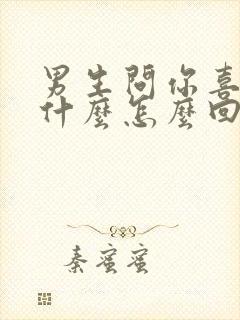 男生問你喜
什麼怎麼回
秦蜜蜜